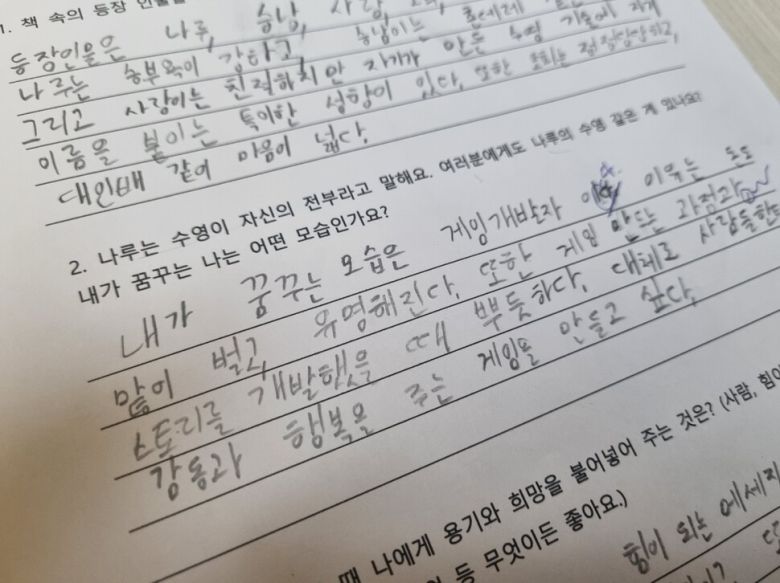 1. 책 속의 등장 인물
등장인물은 나루, 승남, 사랑,
나루는 승부욕이 강하고, 승남이는
그리고 사랑이는 친절하지만 자기가 만든 수영 기술에 자기
이름을 붙이는 특이한 성향이 있다. 또한 초희는 정정당당하고,
대인배 같이 마음이 넓다.
2. 나루는 수영이 자신의 전부라고 말해요. 여러분에게도 나루의 수영 같은 게 있나요?
내가 꿈꾸는 나는 어떤 모습인가요?
내가 꿈꾸는 모습은 게임개발자 이유는 돈도
많이 벌고, 유명해진다. 또한 게임 만드는 과정과
스토리를 개발했을 때 뿌듯하다. 대체로 사람들한
감동과 행복을 주는 게임을 만들고 싶다.
때 나에게 용기와 희망을 불어넣어 주는 것은? (사람, 힘이
등 무엇이든 좋아요.)
힘이 되는 메세지